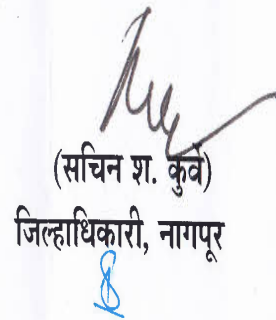 (सचिन श. कुर्वे)
जिल्हाधिकारी, नागपूर